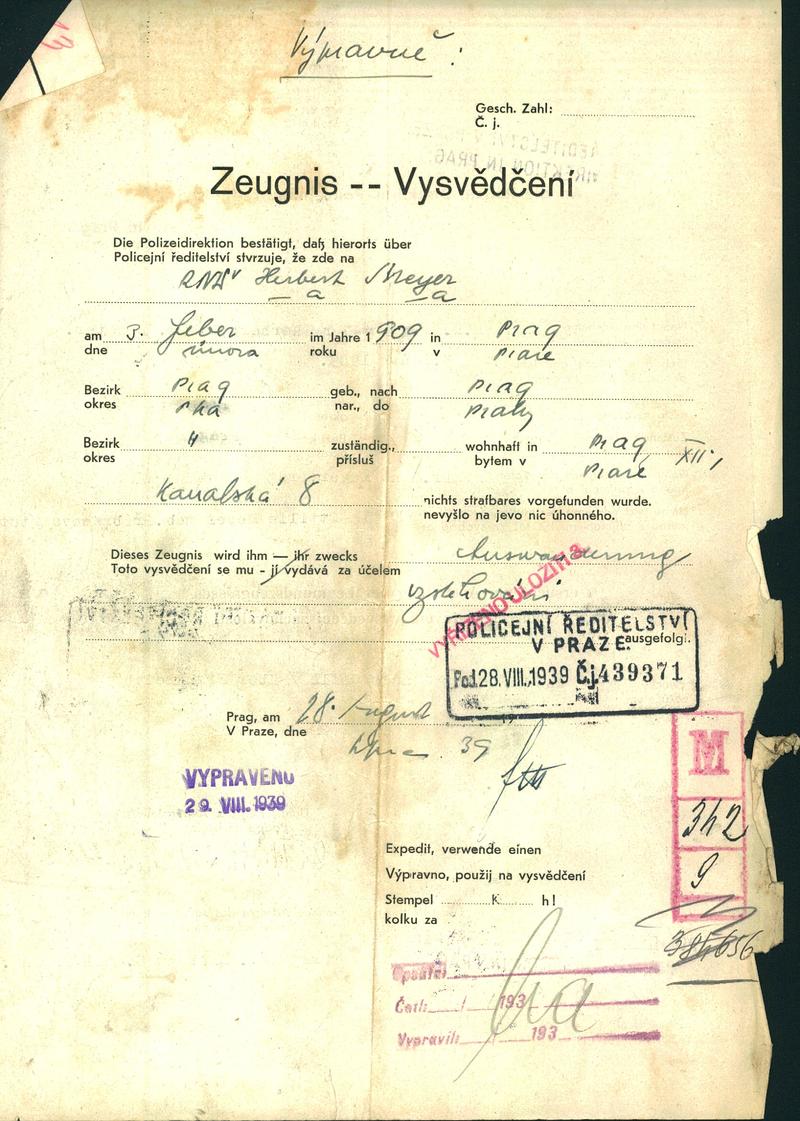 Výpravně:
Gesch. Zahl:
Č. j.
Zeugnis -- Vysvědčení
Die Polizeidirektion bestätigt, daß hierorts über
Policejní ředitelství stvrzuje, že zde na
Herbert Meyer
a a
am 3. Feber im Jahre 1909 in Prag
dne února roku v Praze
Bezirk Prag geb., nach Prag
okres Pha nar., do Prahy
Bezirk " zuständig., wohnhaft in Prag XII.,
okres přísluš bytem v Praze
Kanalská 8 nichts strafbares vorgefunden wurde.
nevyšlo na jevo nic úhonného.
Dieses Zeugnis wird ihm — ihr zwecks Auswanderung
Toto vysvědčení se mu - jí vydává za účelem
vystěhování
VYŘÍZENO ULOŽIT
POLICEJNÍ ŘEDITELSTVÍ
V PRAZE ausgefolgt.
Pod. 28. VIII. 1939 Čj. 439371
Prag, am 28. August 19
V Praze, dne srpna 39
VYPRAVENO
29. VIII. 1939
M
342
9
Expedit, verwende einen
Výpravno, použij na vysvědčení
Stempel K h!
kolku za
Opsáno:
Četl: / 193
Vypravil: 193